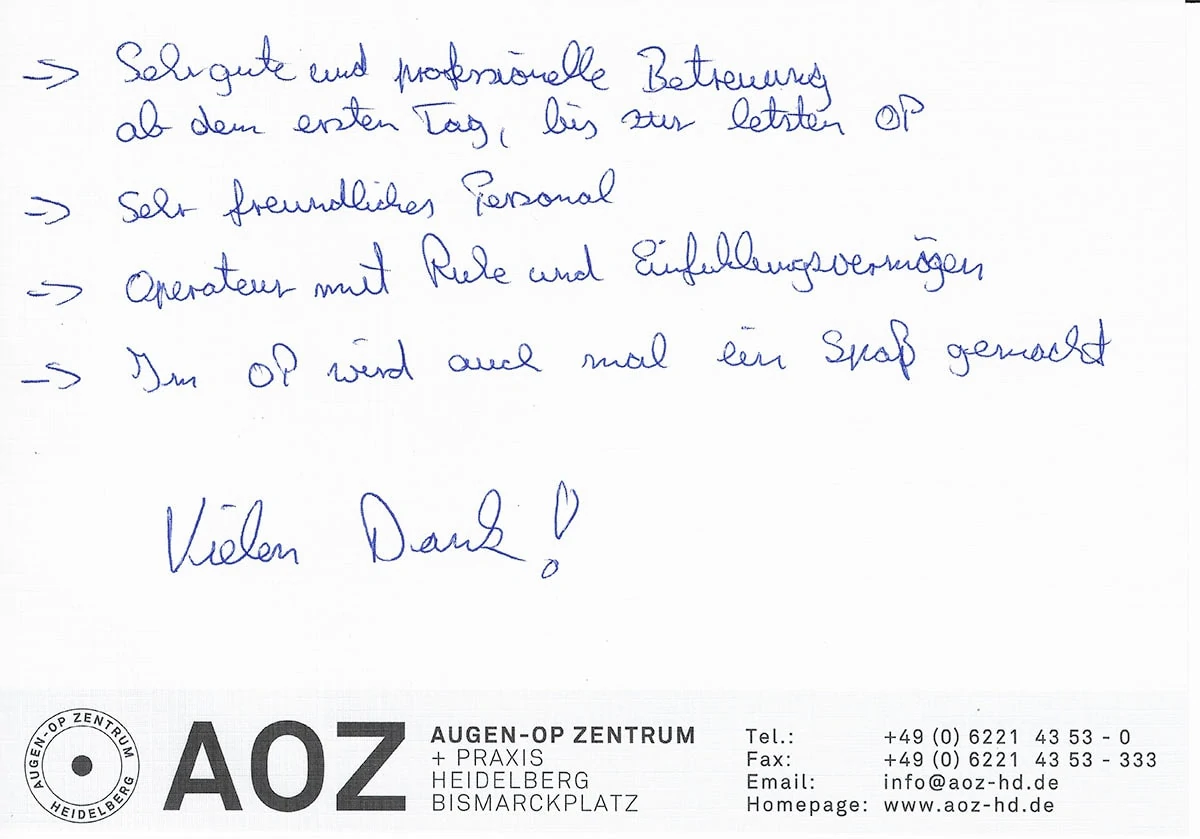 -> Sehr gute und professionelle Betreuung
ab dem ersten Tag, bis zur letzten OP
-> Sehr freundliches Personal
-> Operateur mit Ruhe und Einfühlungsvermögen
-> Im OP wird auch mal ein Spaß gemacht
Vielen Dank!
AUGEN-OP ZENTRUM
HEIDELBERG
AOZ
AUGEN-OP ZENTRUM
+ PRAXIS
HEIDELBERG
BISMARCKPLATZ
Tel.: +49 (0) 6221 43 53 - 0
Fax: +49 (0) 6221 43 53 - 333
Email: info@aoz-hd.de
Homepage: www.aoz-hd.de